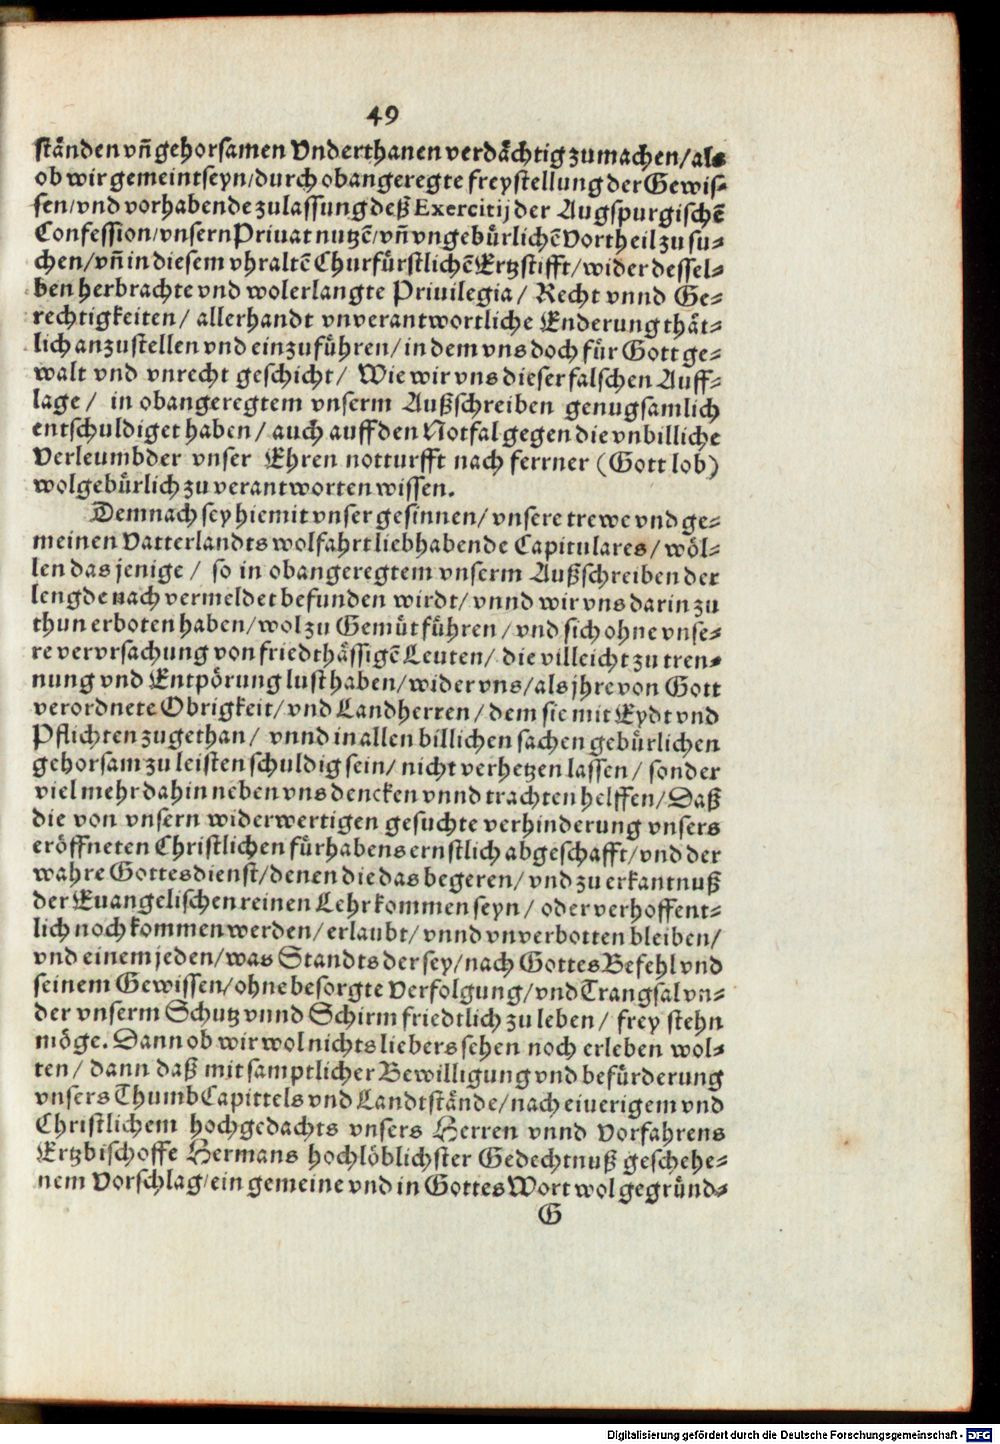 49
ständen vñ gehorsamen Vnderthanen verdächtig zumachen/als
ob wir gemeint seyn/durch obangeregte freystellung der Gewis-
sen/vnd vorhabende zulassung deß Exercitij der Augspurgischē
Confession/vnsern Priuat nutzē/vñ vngebürlichē Vortheil zu su-
chen/vñ in diesem vhraltē Churfürstlichē Ertzstifft/wider dessel-
ben herbrachte vnd wolerlangte Priuilegia/ Recht vnnd Ge-
rechtigkeiten/ allerhandt vnverantwortliche Enderung thät-
lich anzustellen vnd einzuführen/in dem vns doch für Gott ge-
walt vnd vnrecht geschicht/ Wie wir vns dieser falschen Auff-
lage/ in obangeregtem vnserm Außschreiben genugsamlich
entschuldiget haben/auch auff den Notfal gegen die vnbilliche
Verleumbder vnser Ehren notturfft nach ferrner (Gott lob)
wolgebürlich zu verantworten wissen.
Demnach sey hiemit vnser gesinnen/vnsere trewe vnd ge-
meinen Vatterlandts wolfahrt liebhabende Capitulares/wöl-
len das jenige/ so in obangeregtem vnserm Außschreiben der
lengde nach vermeldet befunden wirdt/vnnd wir vns darin zu
thun erboten haben/wol zu Gemüt führen/vnd sich ohne vnse-
re vervrsachung von friedthässigē Leuten/ die villeicht zu tren-
nung vnd Entpörung lust haben/wider vns/als jhre von Gott
verordnete Obrigkeit/vnd Landherren/dem sie mit Eydt vnd
Pflichten zugethan/ vnnd in allen billichen sachen gebürlichen
gehorsam zu leisten schuldig sein/nicht verhetzen lassen/ sonder
viel mehr dahin neben vns dencken vnnd trachten helffen/Daß
die von vnsern widerwertigen gesuchte verhinderung vnsers
eröffneten Christlichen fürhabens ernstlich abgeschafft/vnd der
wahre Gottesdienst/denen die das begeren/vnd zu erkantnuß
der Euangelischen reinen Lehr kommen seyn/ oder verhoffent-
lich noch kommen werden/erlaubt/vnnd vnverbotten bleiben/
vnd einem jeden/was Standts der sey/nach Gottes Befehl vnd
seinem Gewissen/ohne besorgte Verfolgung/vnd Trangsal vn-
der vnserm Schutz vnnd Schirm friedtlich zu leben/ frey stehn
möge. Dann ob wir wol nichts liebers sehen noch erleben wol-
ten/ dann daß mit samptlicher Bewilligung vnd befürderung
vnsers ThumbCapittels vnd Landtstände/nach eiuerigem vnd
Christlichem hochgedachts vnsers Herren vnnd Vorfahrens
Ertzbischoffe Hermans hochlöblichster Gedechtnuß geschehe-
nem Vorschlag/ein gemeine vnd in Gottes Wort wol gegründ-
G
Digitalisierung gefördert durch die Deutsche Forschungsgemeinschaft - DFG